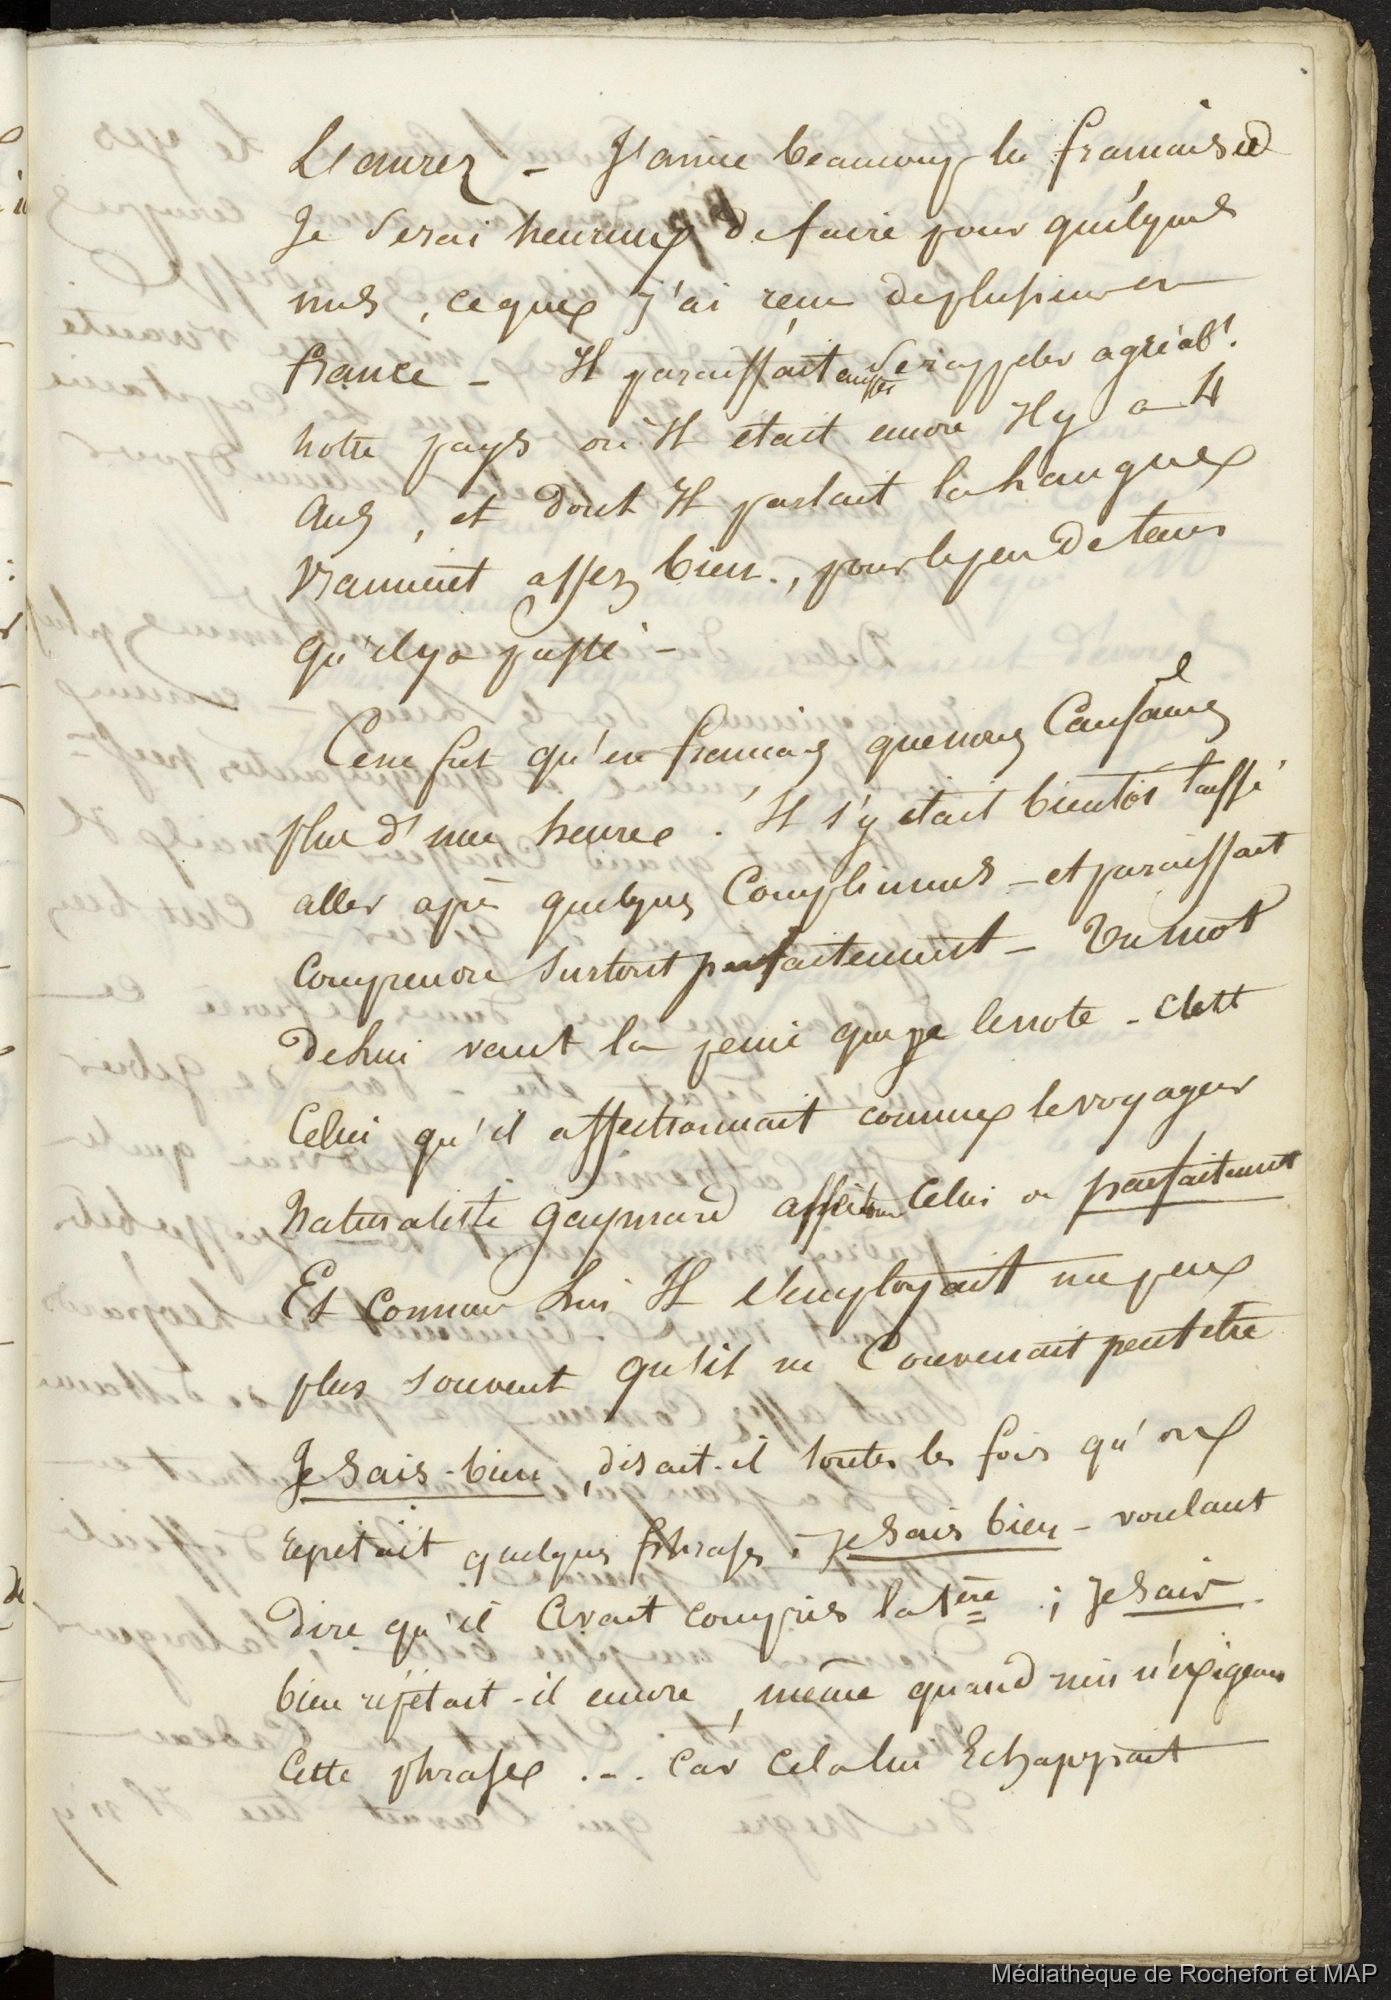 L'aurez – J'aime beaucoup les francais et
Je serai heureux de faire pour quelques
uns, ce que j'ai recu de plusieurs en
france – Il paraissait aussi se rappeler agréabt.
notre pays où Il était encore Il y a 4
ans, et dont Il parlait la Langue
vraiment assez bien., pour le peu de tems
qu'il y a passé –
Ce ne fut qu'en francais que nous Causames
plus d'une heure. Il s'y était bientôt laissé
aller après quelques Complimens – et paraissait
comprendre surtout parfaitement – Un mot
de Lui vaut la peine que je le note – c'est
Celui qu'il affectionnait comme le voyageur
Naturaliste Gaymard affectionne Celui de parfaitement
Et comme Lui Il l'employait un peu
plus souvent qu'il ne Convenait peut etre
Je sais-bien, disait-il toutes les fois qu'on
repetait quelques phrases; je sais bien – voulant
dire qu'il avait compris la 1ère; je sais
bien répétait-il encore, même quand rien n'exigeait
Cette phrase ... car cela lui Echappait
Médiathèque de Rochefort et MAP